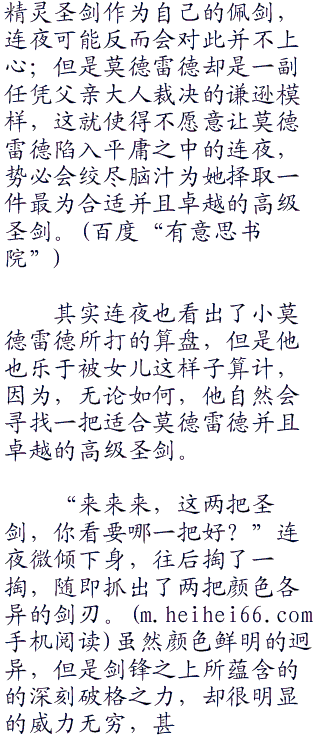 精灵圣剑作为自己的佩剑，
连夜可能反而会对此并不上
心；但是莫德雷德却是一副
任凭父亲大人裁决的谦逊模
样，这就使得不愿意让莫德
雷德陷入平庸之中的连夜，
势必会绞尽脑汁为她择取一
件最为合适并且卓越的高级
圣剑。(百度“有意思书
院”)
其实连夜也看出了小莫
德雷德所打的算盘，但是他
也乐于被女儿这样子算计，
因为，无论如何，他自然会
寻找一把适合莫德雷德并且
卓越的高级圣剑。
“来来来，这两把圣
剑，你看要哪一把好？”连
夜微倾下身，往后掏了一
掏，随即抓出了两把颜色各
异的剑刃。(m.heihei66.com
手机阅读)虽然颜色鲜明的迥
异，但是剑锋之上所蕴含的
的深刻破格之力，却很明显
的威力无穷，甚